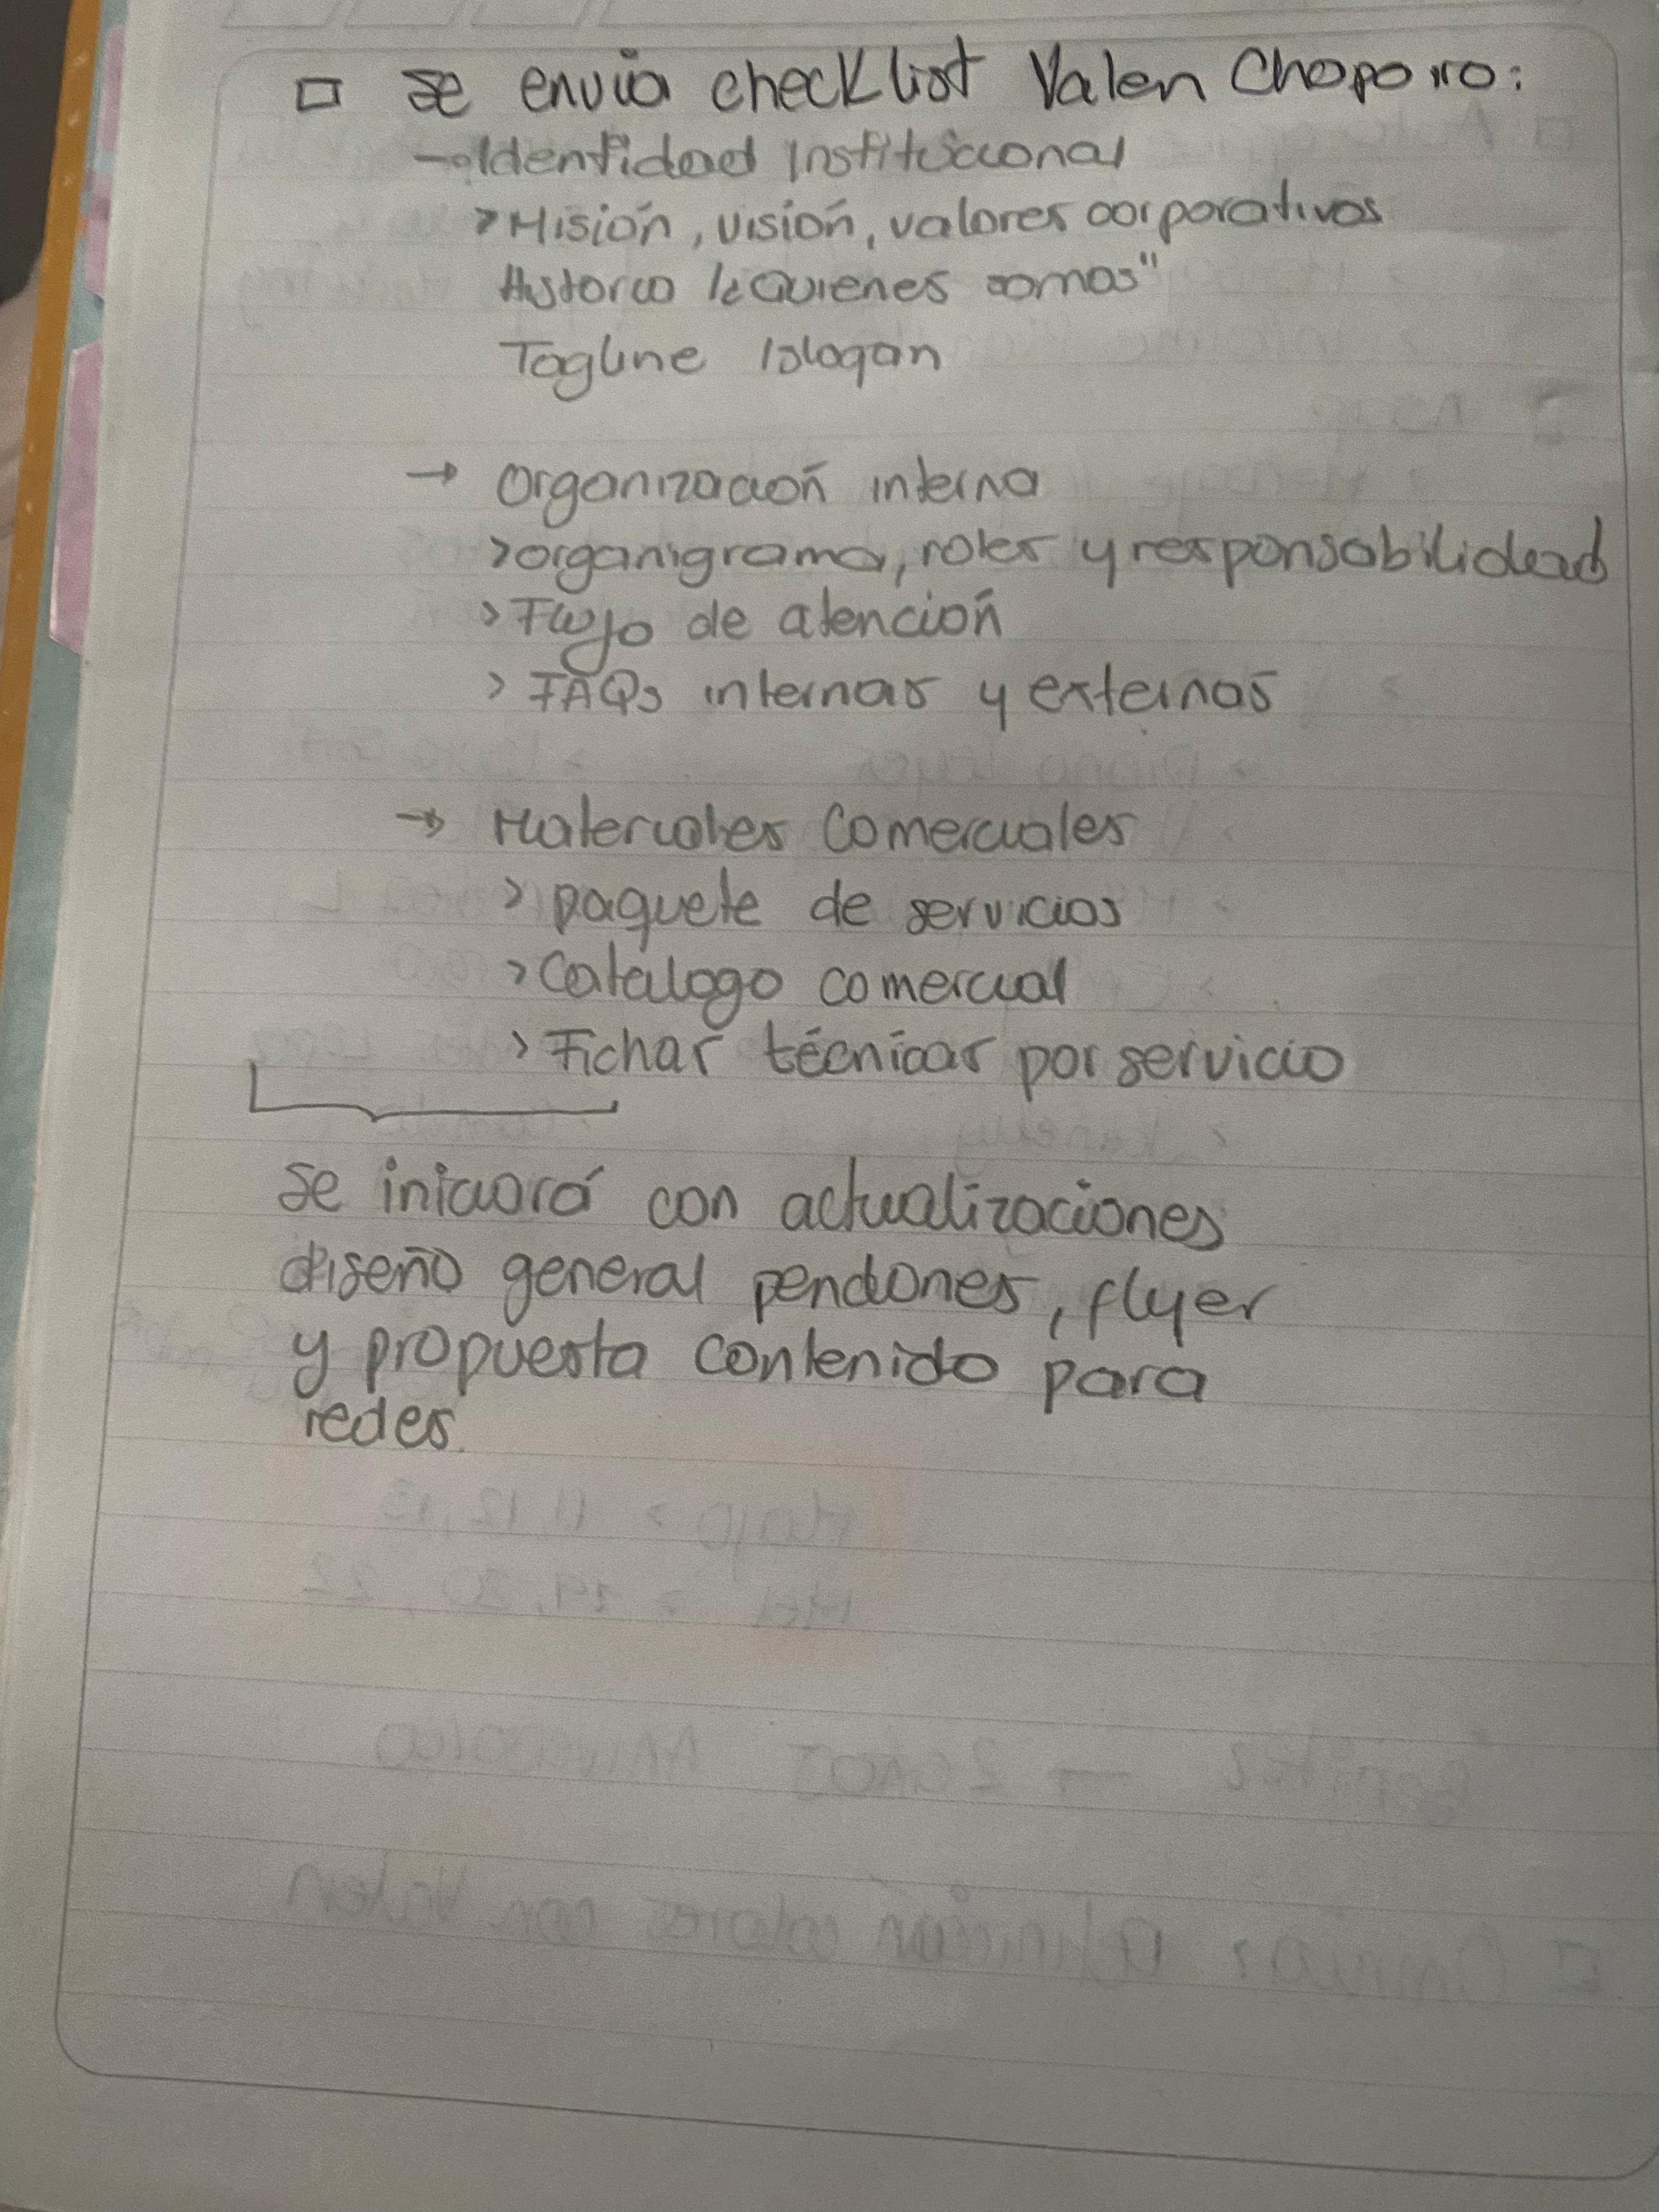 □ Se envia checklist Valen Chaparro:
→ Identidad Institucional
> Misión, visión, valores corporativos
Historia / "Quienes somos"
Tagline / slogan
→ Organización interna
> organigrama, roles y responsabilidad
> Flujo de atención
> FAQs internas y externas
→ Materiales comerciales
> paquete de servicios
> Catalogo comercial
> Fichas técnicas por servicio
Se iniciará con actualizaciones
diseño general pendones, flyer
y propuesta contenido para
redes.